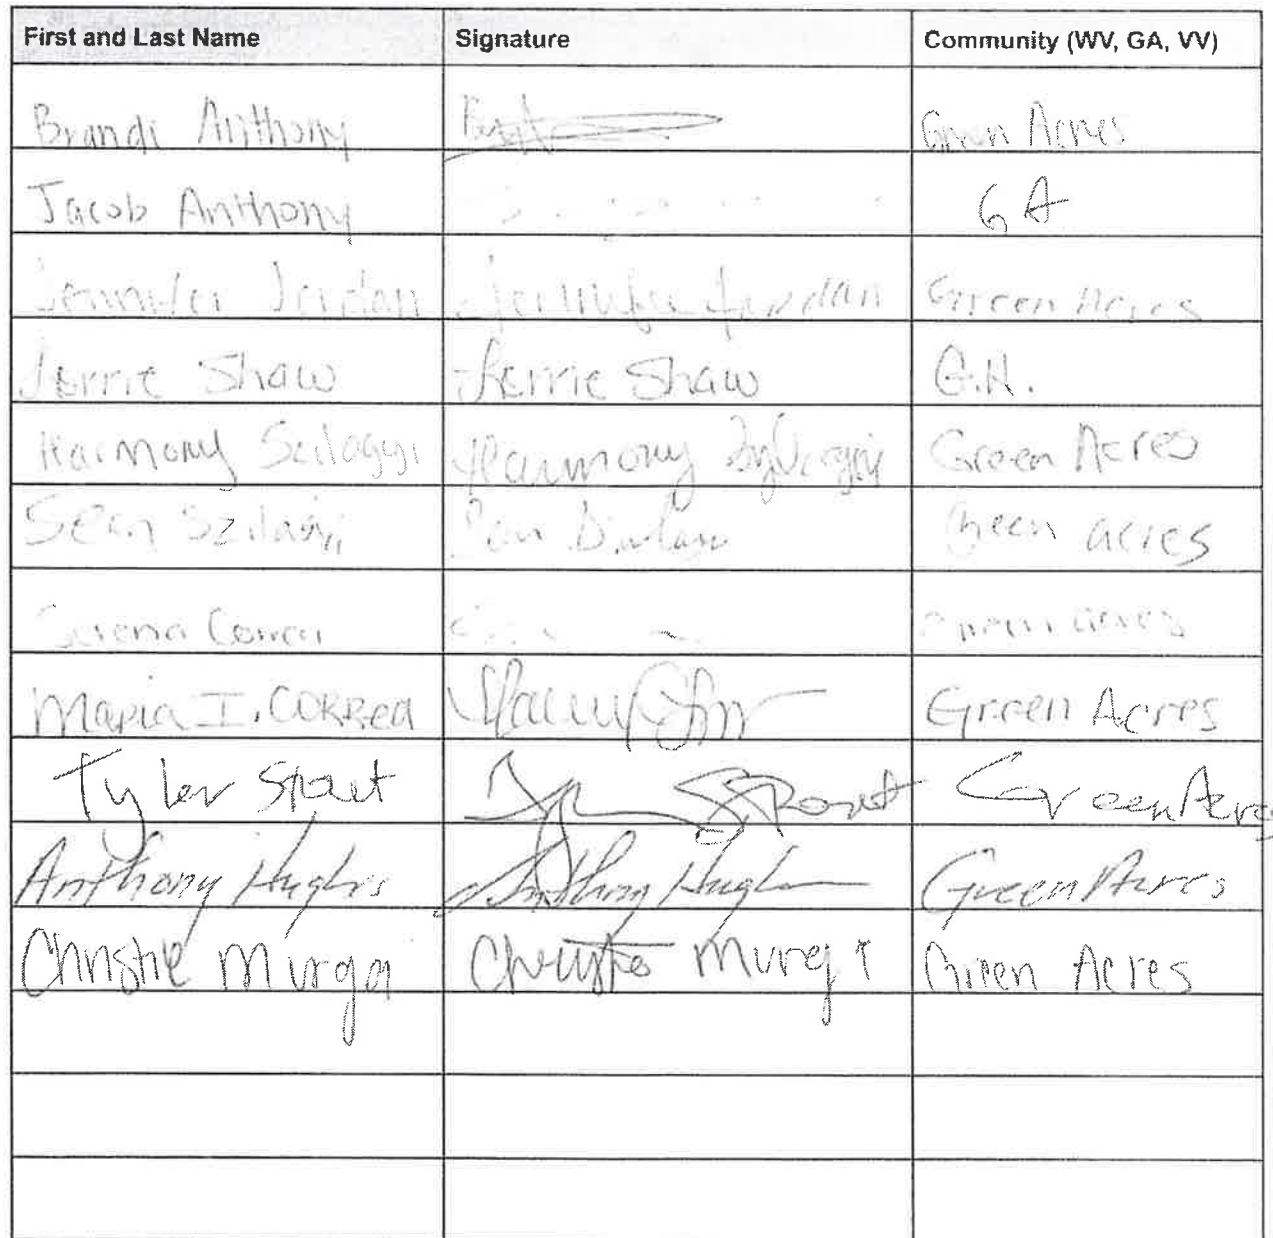 First and Last Name Signature Community (WV, GA, VV)
Brandi Anthony Green Acres
Jacob Anthony GA
Jennifer Jordan Jennifer Jordan Green Acres
Jerrie Shaw Jerrie Shaw G.A.
Harmony Szilagyi Harmony Green Acres
Sean Szilagyi Green acres
Serena Correa Green acres
Maria I. CORREA Green Acres
Tyler Green Acres
Anthony Hughes Anthony Hughes Green Acres
Christie Murga Christie Green Acres